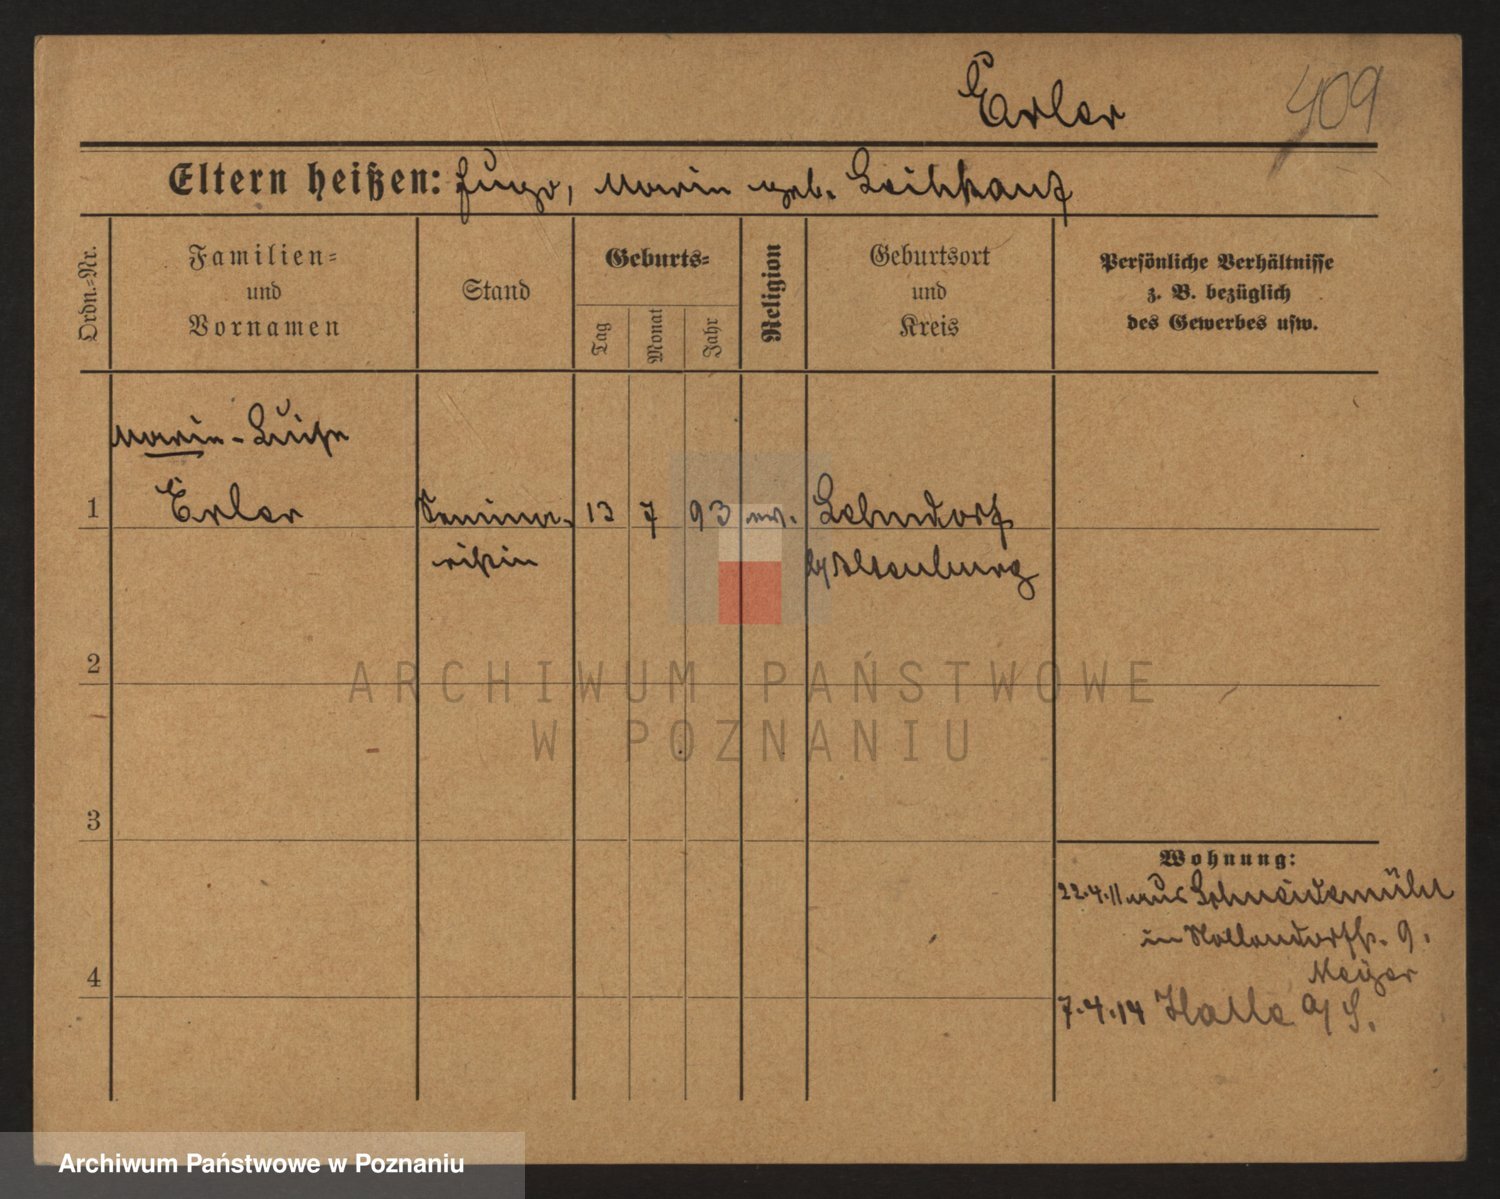 Erler
409
Eltern heißen: Hugo, Marie geb.
Ordn.-Nr.
Familien-
und
Vornamen
Stand
Geburts-
Tag
Monat
Jahr
Religion
Geburtsort
und
Kreis
Persönliche Verhältnisse
z. B. bezüglich
des Gewerbes usw.
Marie-Luise
1 Erler Semina- 13 7 93 ev. Lehndorf
ristin b/Altenburg
2
3
4
Wohnung:
22.4.11 aus Schneidemühl
in Nollendorfstr. 9.
Meyer
7.4.14 Halle a/S.
ARCHIWUM PAŃSTWOWE
W POZNANIU
Archiwum Państwowe w Poznaniu